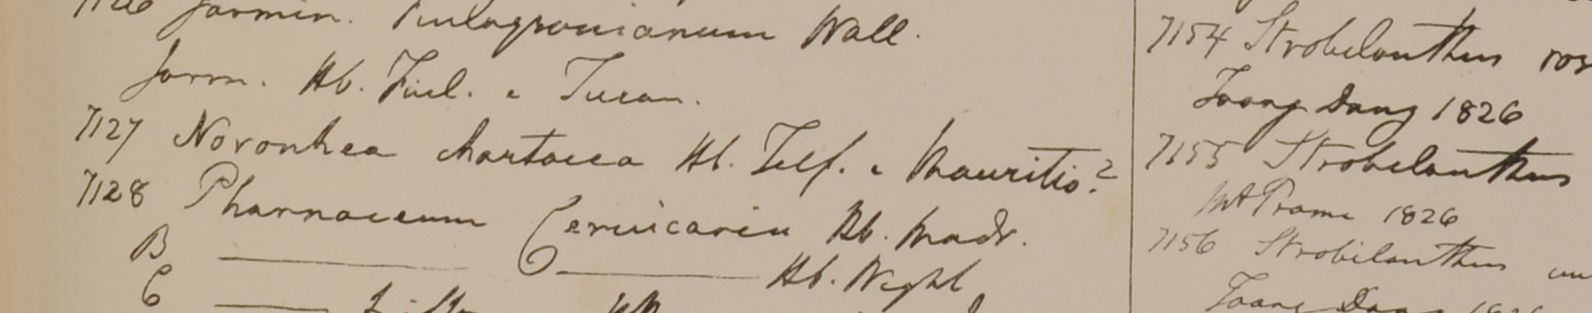 7126 Jasmin. Wall.
Jasm. Hb. Finl. e Turan.
7127 Noronhea chartacea Hb. Telf. e Mauritio?
7128 Pharnaceum Cerviearia Hb. Madr.
B ——— Hb. Wight
C ———
7154 Strobilanthus
Toong Dong 1826
7155 Strobilanthus
Mt Prome 1826
7156 Strobilanthus
Toong Dong 1826